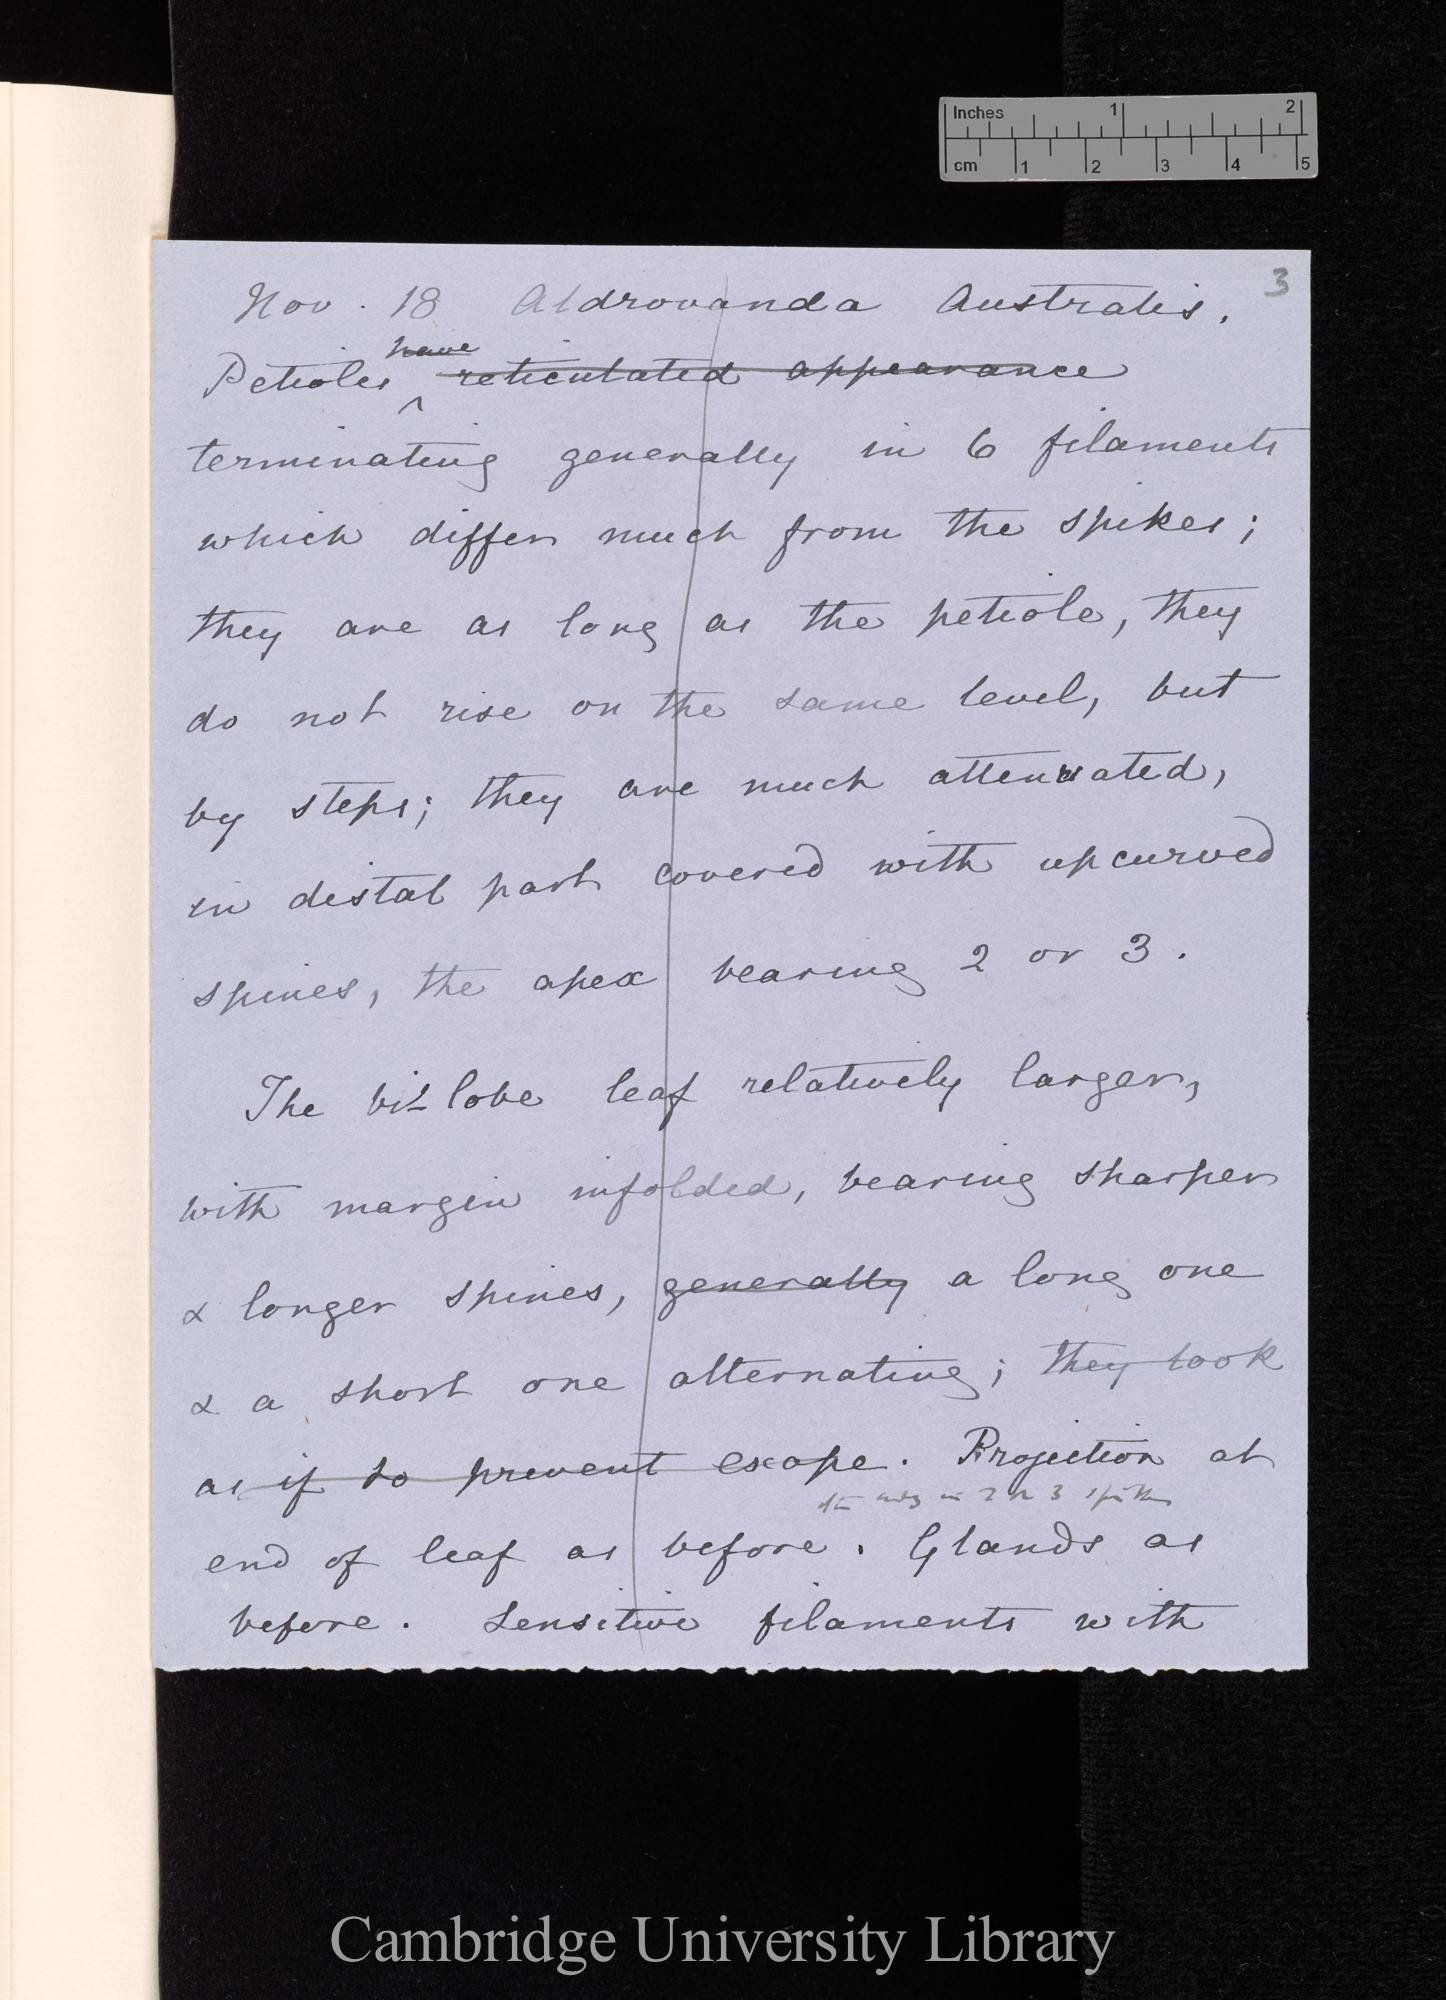 Inches 1 2
cm 1 2 3 4 5
3
Nov. 18 Aldrovanda Australis.
have
Petioles reticulated appearance
terminating generally in 6 filaments
which differ much from the spikes;
they are as long as the petiole, they
do not rise on the same level, but
by steps; they are much attenuated,
in distal part covered with upcurved
spines, the apex bearing 2 or 3.
The bi-lobe leaf relatively larger,
with margin infolded, bearing sharper
& longer spines, generally a long one
& a short one alternating; they look
as if to prevent escape. Projection at
in 2 or 3
end of leaf as before. Glands as
before. Sensitive filaments with
Cambridge University Library